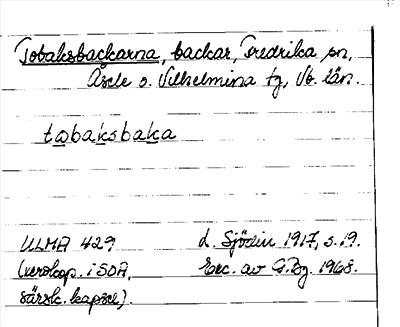 Tobaksbackarna, backar, Fredrika sn,
Åsele o. Vilhelmina tg, Vb. län.
tobaksbaka
ULMA 429 L. Sjödin 1917, s. 19.
(verskap. i SOA, Exc. av G.Bg. 1968.
särsk. kapsel).